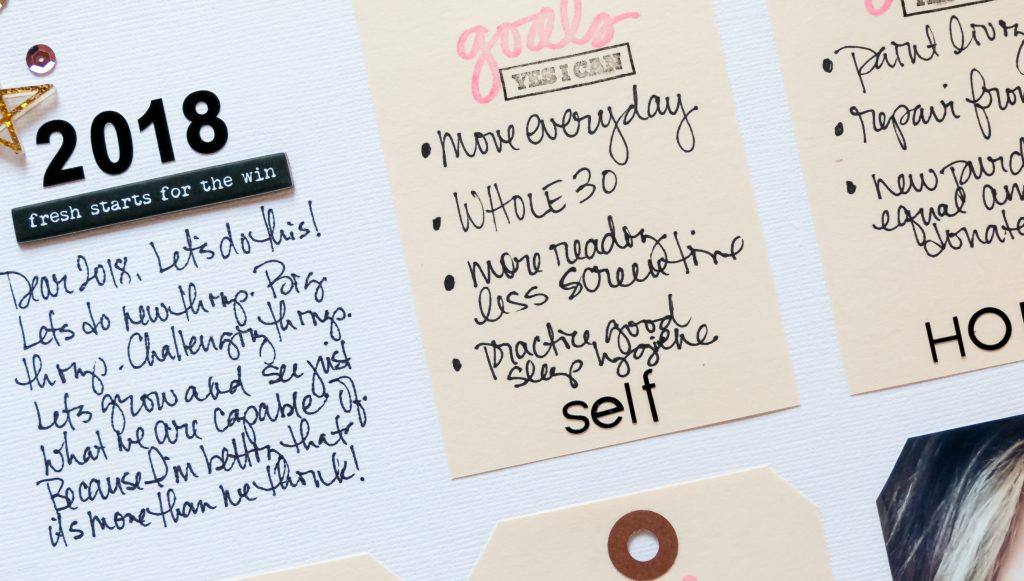 2018
fresh starts for the win
Dear 2018, Let's do this!
Lets do new things. Big
things. Challenging things.
Lets grow and see just
what we are capable of.
Because I'm betting that
its more than we think!
goals
YES I CAN
• move everyday
• WHOLE 30
• more reading
less screen time
• practice good
sleep hygiene
self
• paint living
• repair fron
• new yard
equal am
donate
HO